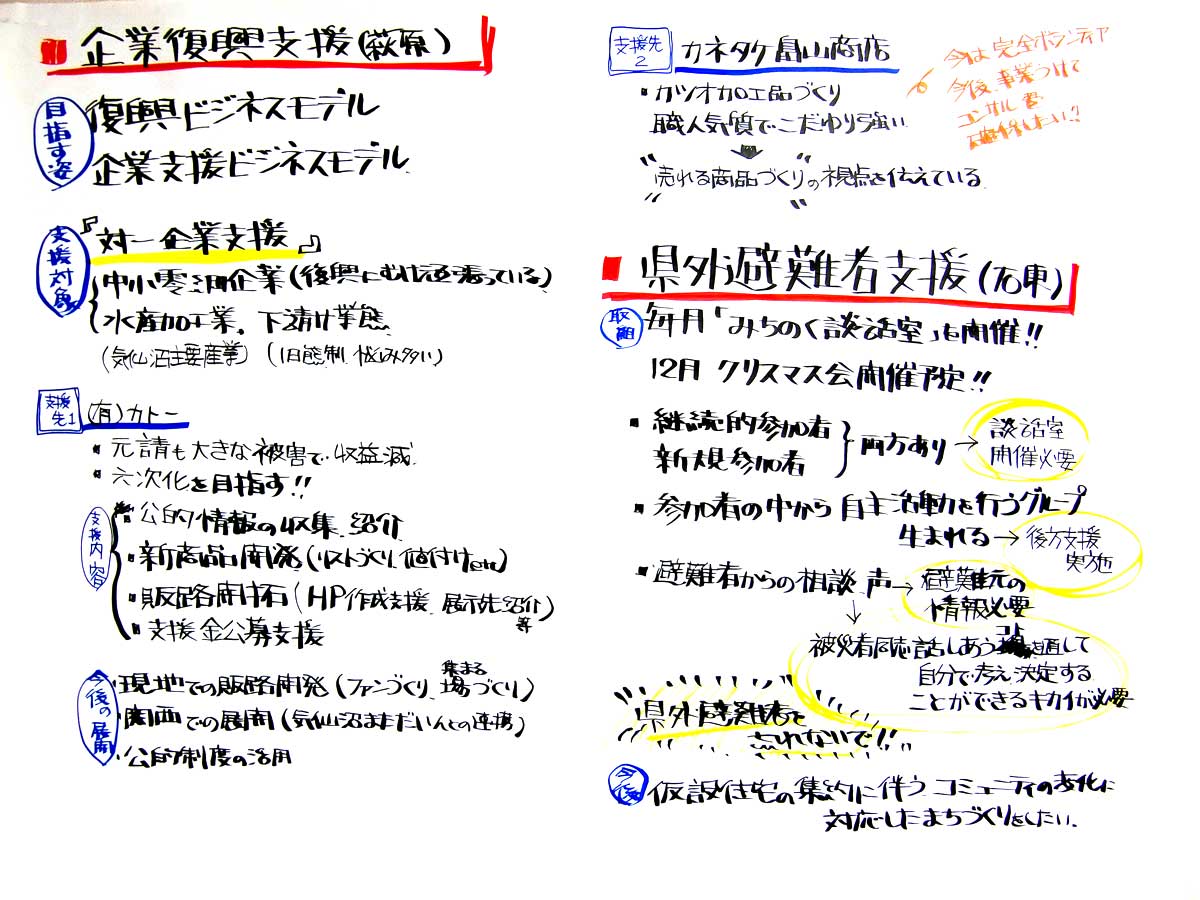 企業復興支援(萩原)
目指す姿
復興ビジネスモデル
企業支援ビジネスモデル
支援対象
『対一企業支援』
中小零細企業(復興にむけ頑張っている)
水産加工業。下請け業態
(気仙沼主要産業) (旧態制 悩み多い)
支援先1
(有)カトー
・元請も大きな被害で収益減
・六次化を目指す!!
支援内容
・公的情報の収集、紹介
・新商品開発(リストづくり、値付けetc)
・販路開拓(HP作成支援、展示先紹介等)
・支援金公募支援
今後の展開
・現地での販路開発(ファンづくり、集まる場づくり)
・関西での展開(気仙沼まだいんとの連携)
・公的制度の活用
支援先2
カネタケ畠山商店
・カツオ加工品づくり
職人気質でこだわり強い
"売れる商品づくり"の視点を伝えている
今は完全ボランティア
今後、事業つけて
コンサル費
確保したい?
県外避難者支援(石東)
取組
毎月「みちのく談話室」も開催!!
12月 クリスマス会開催予定!!
・継続的参加者
新規参加者
両方あり→
談話室
開催必要
・参加者の中から自主活動を行うグループ
生まれる→
後方支援
実施
・避難者からの相談、声→
避難元の
情報必要
被災者同志話しあうコト通して
自分で考え、決定する
ことができるキカイが必要
県外避難者を
忘れないで!!
今後
仮設住宅の集約に伴うコミュニティの劣化に
対応したまちづくりをしたい。